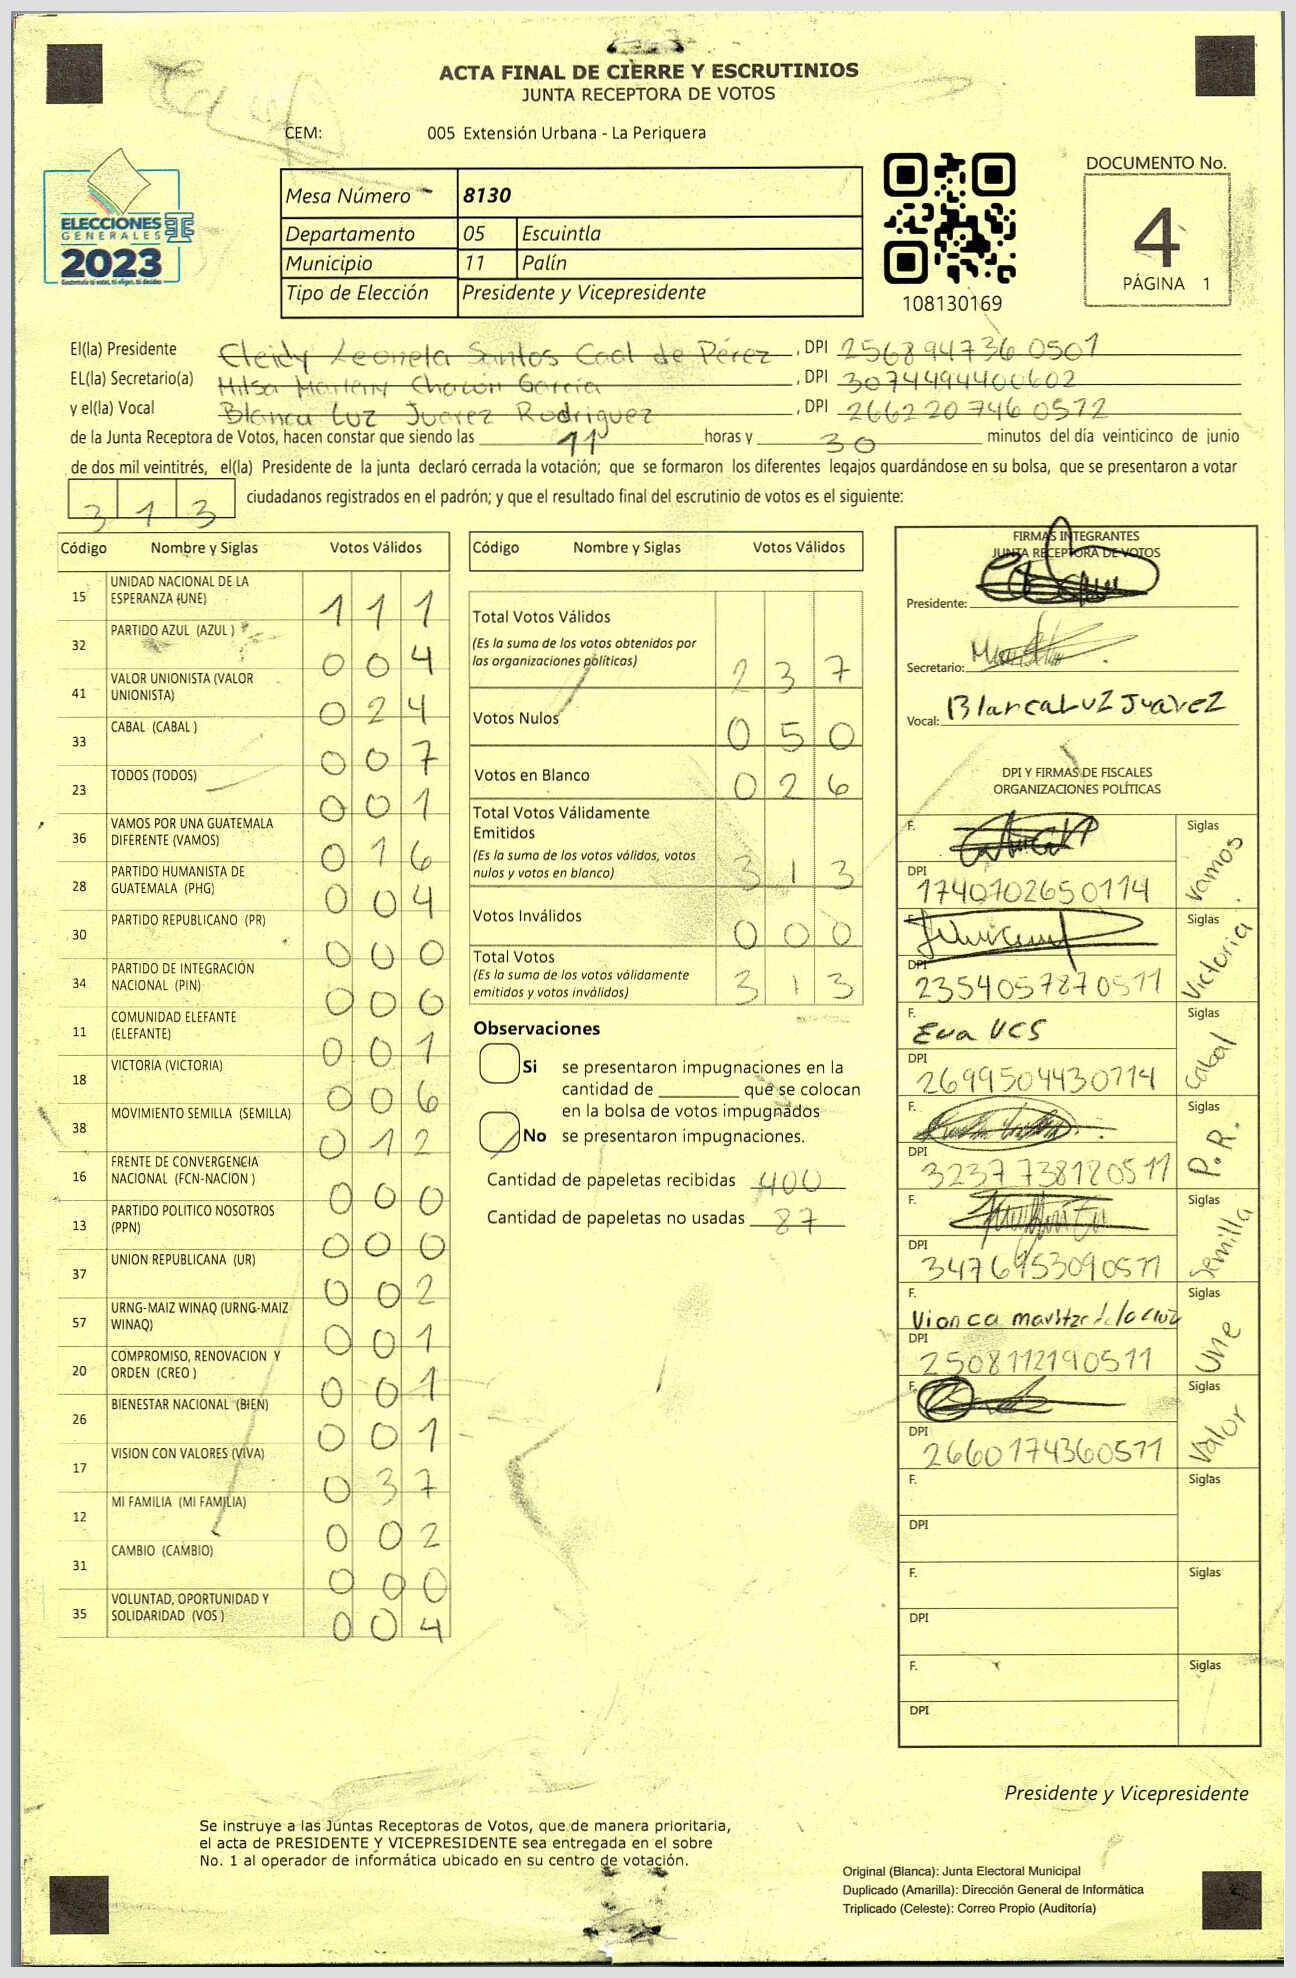 ACTA FINAL DE CIERRE Y ESCRUTINIOS
JUNTA RECEPTORA DE VOTOS
CEM: 005 Extensión Urbana - La Periquera
ELECCIONES
GENERALES
2023
Guatemala tú votas, tú eliges, tú decides
Mesa Número 8130
Departamento 05 Escuintla
Municipio 11 Palín
Tipo de Elección Presidente y Vicepresidente
108130169
DOCUMENTO No.
4
PÁGINA 1
El(la) Presidente Cleidy Leonela Santos Caal de Pérez, DPI 256894736 0501
EL(la) Secretario(a) Hilsa Marleny Chacón García, DPI 3074494400602
y el(la) Vocal Blanca Luz Juarez Rodriguez, DPI 266220746 0512
de la Junta Receptora de Votos, hacen constar que siendo las 11 horas y 30 minutos del día veinticinco de junio
de dos mil veintitrés, el(la) Presidente de la junta declaró cerrada la votación; que se formaron los diferentes legajos guardándose en su bolsa, que se presentaron a votar
313 ciudadanos registrados en el padrón; y que el resultado final del escrutinio de votos es el siguiente:
Código Nombre y Siglas Votos Válidos
15 UNIDAD NACIONAL DE LA ESPERANZA (UNE) 111
32 PARTIDO AZUL (AZUL ) 004
41 VALOR UNIONISTA (VALOR UNIONISTA) 024
33 CABAL (CABAL ) 007
23 TODOS (TODOS) 001
36 VAMOS POR UNA GUATEMALA DIFERENTE (VAMOS) 016
28 PARTIDO HUMANISTA DE GUATEMALA (PHG) 004
30 PARTIDO REPUBLICANO (PR) 000
34 PARTIDO DE INTEGRACIÓN NACIONAL (PIN) 000
11 COMUNIDAD ELEFANTE (ELEFANTE) 001
18 VICTORIA (VICTORIA) 006
38 MOVIMIENTO SEMILLA (SEMILLA) 012
16 FRENTE DE CONVERGENCIA NACIONAL (FCN-NACION ) 000
13 PARTIDO POLITICO NOSOTROS (PPN) 000
37 UNION REPUBLICANA (UR) 002
57 URNG-MAIZ WINAQ (URNG-MAIZ WINAQ) 001
20 COMPROMISO, RENOVACION Y ORDEN (CREO ) 001
26 BIENESTAR NACIONAL (BIEN) 001
17 VISION CON VALORES (VIVA) 037
12 MI FAMILIA (MI FAMILIA) 002
31 CAMBIO (CAMBIO) 000
35 VOLUNTAD, OPORTUNIDAD Y SOLIDARIDAD (VOS ) 004
Código Nombre y Siglas Votos Válidos
Total Votos Válidos 237
(Es la suma de los votos obtenidos por
las organizaciones políticas)
Votos Nulos 050
Votos en Blanco 026
Total Votos Válidamente
Emitidos 313
(Es la suma de los votos válidos, votos
nulos y votos en blanco)
Votos Inválidos 000
Total Votos 313
(Es la suma de los votos válidamente
emitidos y votos inválidos)
Observaciones
Si se presentaron impugnaciones en la
cantidad de ________ que se colocan
en la bolsa de votos impugnados
No se presentaron impugnaciones.
Cantidad de papeletas recibidas 400
Cantidad de papeletas no usadas 87
FIRMAS INTEGRANTES
JUNTA RECEPTORA DE VOTOS
Presidente:
Secretario:
Vocal: Blanca Luz Juarez
DPI Y FIRMAS DE FISCALES
ORGANIZACIONES POLÍTICAS
F. Siglas Vamos
DPI 1740102650114
F. Siglas Victoria
DPI 2354057870511
F. Eva UCS Siglas Cabal
DPI 2699504430114
F. Siglas P.R.
DPI 3237738120511
F. Siglas Semilla
DPI 3476953090511
F. Vionca maritza de la cruz Siglas Une
DPI 2508112190511
F. Siglas Valor
DPI 2660174360511
F. Siglas
DPI
F. Siglas
DPI
F. Siglas
DPI
Presidente y Vicepresidente
Se instruye a las Juntas Receptoras de Votos, que de manera prioritaria,
el acta de PRESIDENTE Y VICEPRESIDENTE sea entregada en el sobre
No. 1 al operador de informática ubicado en su centro de votación.
Original (Blanca): Junta Electoral Municipal
Duplicado (Amarilla): Dirección General de Informática
Triplicado (Celeste): Correo Propio (Auditoría)